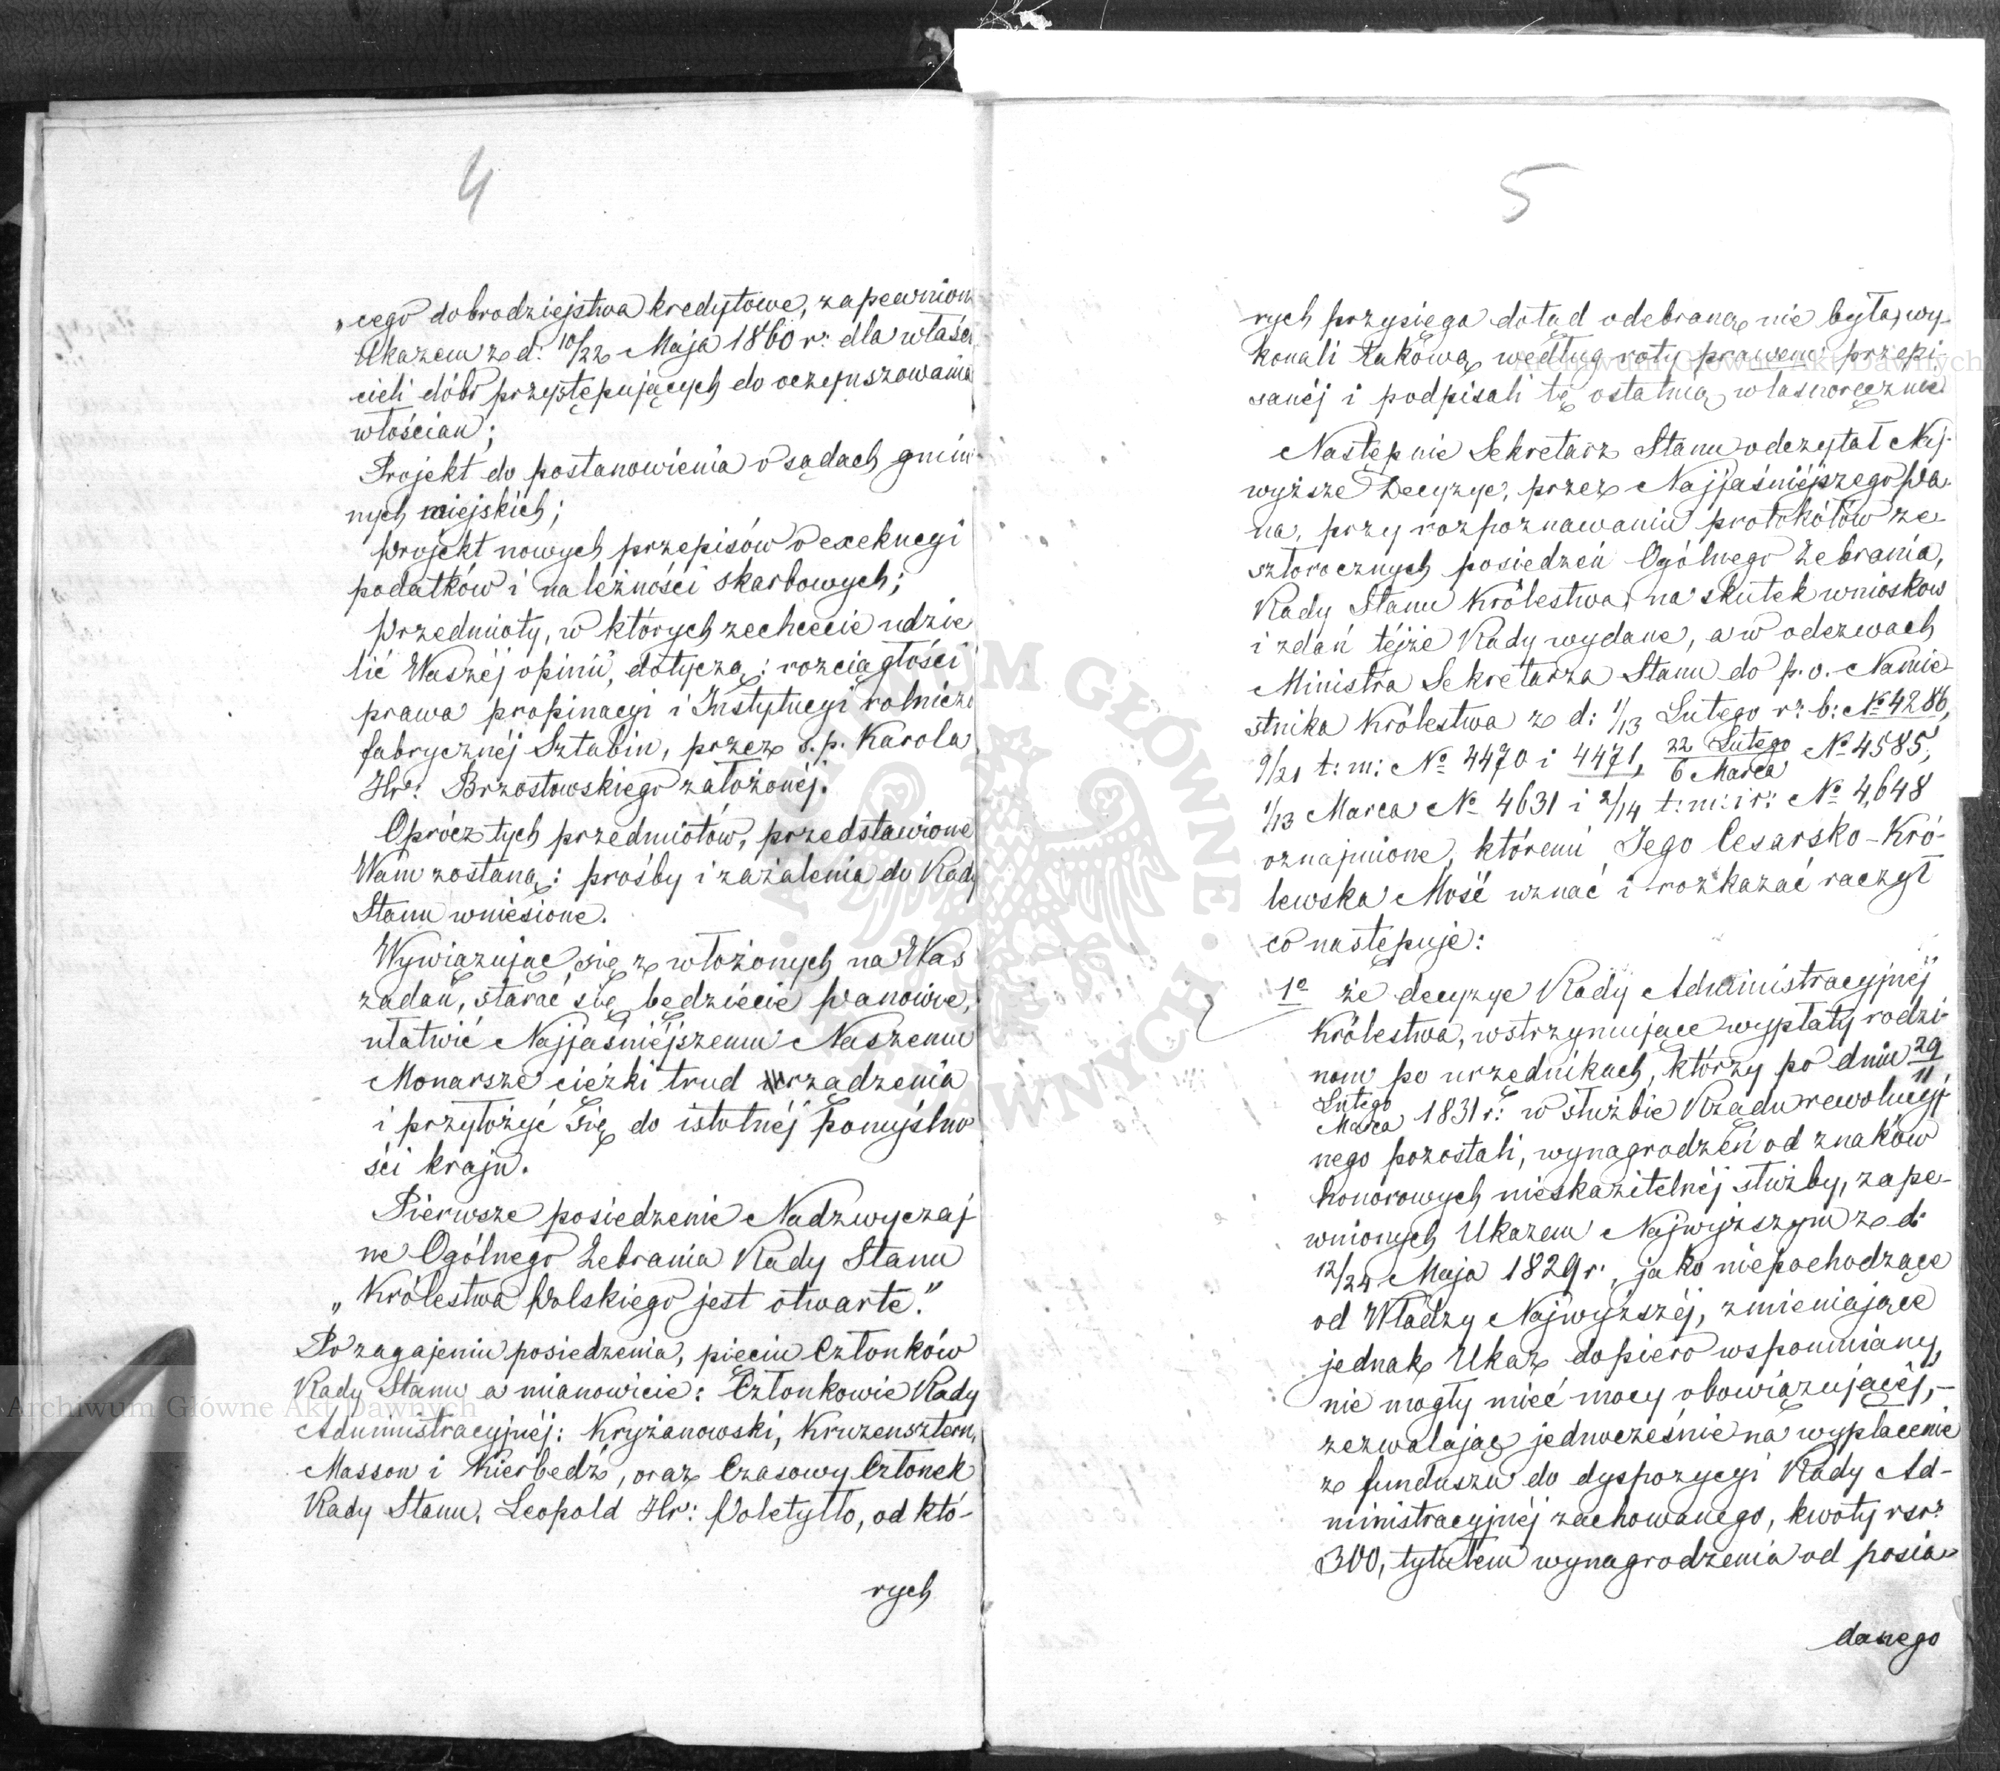 4
„cego dobrodziejstwa kredytowe, zapewnion
Ukazem z d: 10/22 Maja 1860 r: dla właści
cieli dóbr przystępujących do oczynszowania
włościan;
Projekt do postanowienia o sądach gmin
nych miejskich;
Projekt nowych przepisów o exekucyi
podatków i należności skarbowych;
Przedmioty, w których zechcecie udzie
lić Waszéj opinii, dotyczą: rozciągłości
prawa propinacyi i Instytucyi rolniczo
fabrycznéj Sztabin, przez ś.p. Karola
Hr: Brzostowskiego założonéj.
Oprócz tych przedmiotów, przedstawione
Wam zostaną: prośby i zażalenia do Rady
Stanu wniesione.
Wywiązując się z włożonych na Was
zadań, starać się będziecie Panowie,
ułatwić Najjaśniejszemu Naszemu
Monarsze ciężki trud rządzenia
i przyłożyć się do istotnéj pomyślno
ści kraju.
Pierwsze posiedzenie Nadzwyczaj
ne Ogólnego Zebrania Rady Stanu
„Królestwa Polskiego jest otwarte."
Po zagajeniu posiedzenia, pięciu Członków
Rady Stanu a mianowicie: Członkowie Rady
Administracyjnéj: Kryżanowski, Kruzensztern,
Masson i Kierbedź, oraz Czasowy Członek
Rady Stanu, Leopold Hr: Poletyłło, od któ-
rych
5
rych przysięga dotąd odebraną nie była, wy-
konali takową według roty prawem przepi-
sanéj i podpisali tę ostatnią własnoręcznie
Następnie Sekretarz Stanu odczytał Naj-
wyższe Decyzye, przez Najjaśniéjszego Pa-
na, przy rozpoznawaniu protokółów ze-
szłorocznych posiedzeń Ogólnego Zebrania,
Rady Stanu Królestwa, na skutek wniosków
i zdań téjże Rady wydane, a w odezwach
Ministra Sekretarza Stanu do p.o. Namie-
stnika Królestwa z d: 1/13 Lutego r: b: № 4286,
9/21 t: m: № 4470 i 4471, 22 Lutego/6 Marca № 4585,
1/13 Marca № 4631 i 2/14 t: m: i r: № 4,648
oznajmione, któremi Jego Cesarsko-Kró-
lewska Mość uznać i rozkazać raczył
co następuje:
1º że decyzye Rady Administracyjnéj
Królestwa, wstrzymujące wypłaty rodzi-
nom po urzędnikach, którzy po dniu 29/11
Lutego/Marca 1831 r: w służbie Rządu rewolucyj
nego pozostali, wynagrodzeń od znaków
honorowych nieskazitelnéj służby, zape-
wnionych Ukazem Najwyższym z d:
12/24 Maja 1829 r., jako niepochodzące
od Władzy Najwyższéj, zmieniające
jednak Ukaz dopiero wspomniany,
nie mogły mieć mocy obowiązującéj,-
zezwalając jednocześnie na wypłacenie
z funduszu do dyspozycyi Rady Ad-
ministracyjnéj zachowanego, kwoty rsr:
300, tytułem wynagrodzenia od posia-
danego
Archiwum Główne Akt Dawnych
Archiwum Główne Akt Dawnych
ARCHIWUM GŁÓWNE AKT DAWNYCH